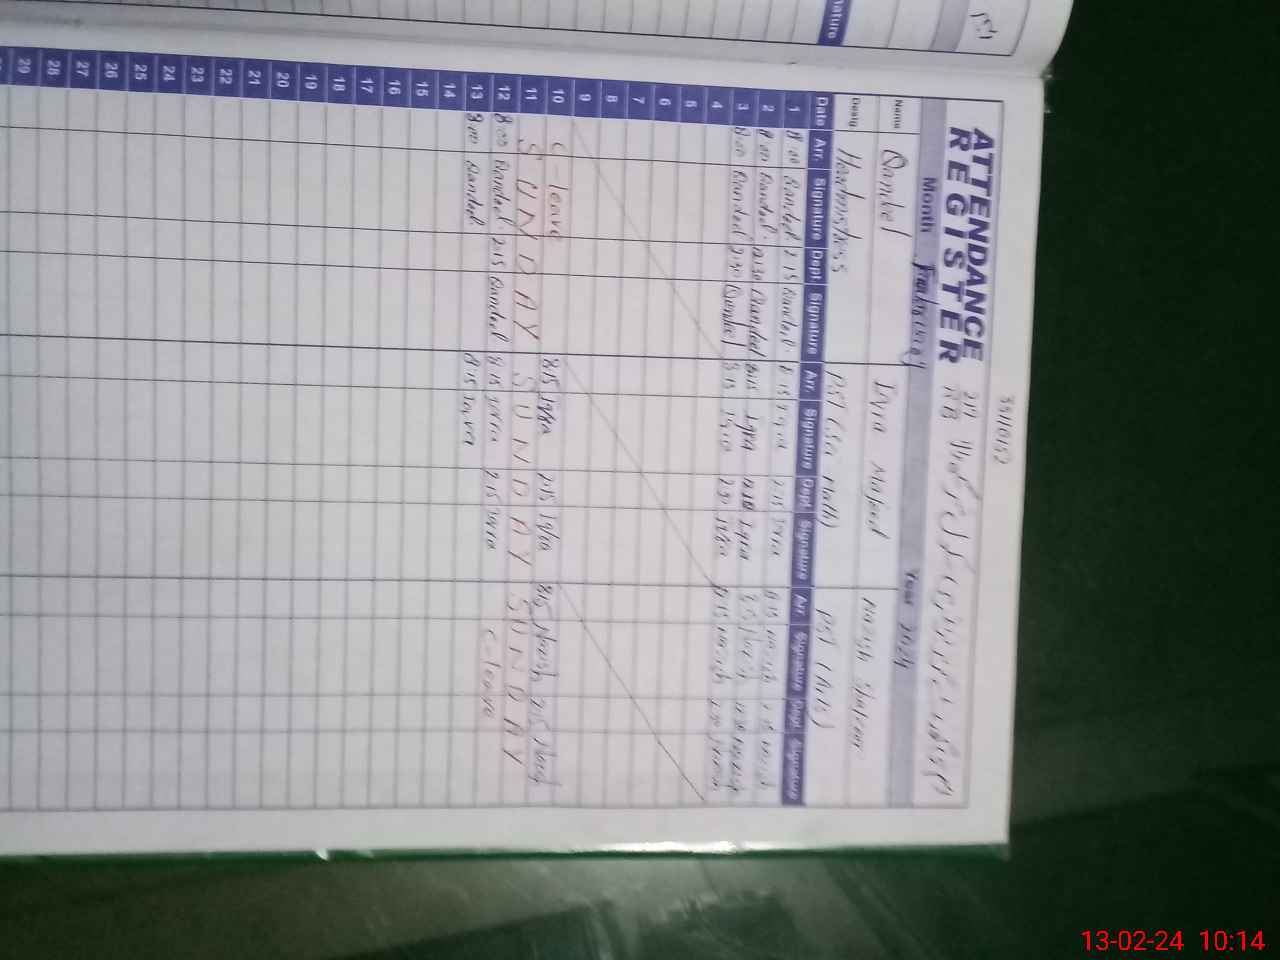 35110152
ATTENDANCE
REGISTER
219
RB
Month February Year 2024
Name Qandeel Iqra Majeed Nazish Shaheen
Desig Headmistress PST (Sci Math) PST (Arts)
Date Arr. Signature Dept. Signature Arr. Signature Dept. Signature Arr. Signature Dept. Signature
1 8:00 Qandeel 2:15 Qandeel 8:15 Iqra 2:15 Iqra 8:15 Nazish 2:15 Nazish
2 8:00 Qandeel 12:30 Qandeel 8:15 Iqra 12:30 Iqra 8:15 Nazish 12:30 Nazish
3 8:00 Qandeel 2:30 Qandeel 8:15 Iqra 2:30 Iqra 8:15 Nazish 2:30 Nazish
4
5
6
7
8
9
10 C-leave 8:15 Iqra 2:15 Iqra 8:15 Nazish 2:15 Nazish
11 SUNDAY SUNDAY SUNDAY
12 8:00 Qandeel 2:15 Qandeel 8:15 Iqra 2:15 Iqra C-leave
13 8:00 Qandeel 8:15 Iqra
14
15
16
17
18
19
20
21
22
23
24
25
26
27
28
29
13-02-24 10:14